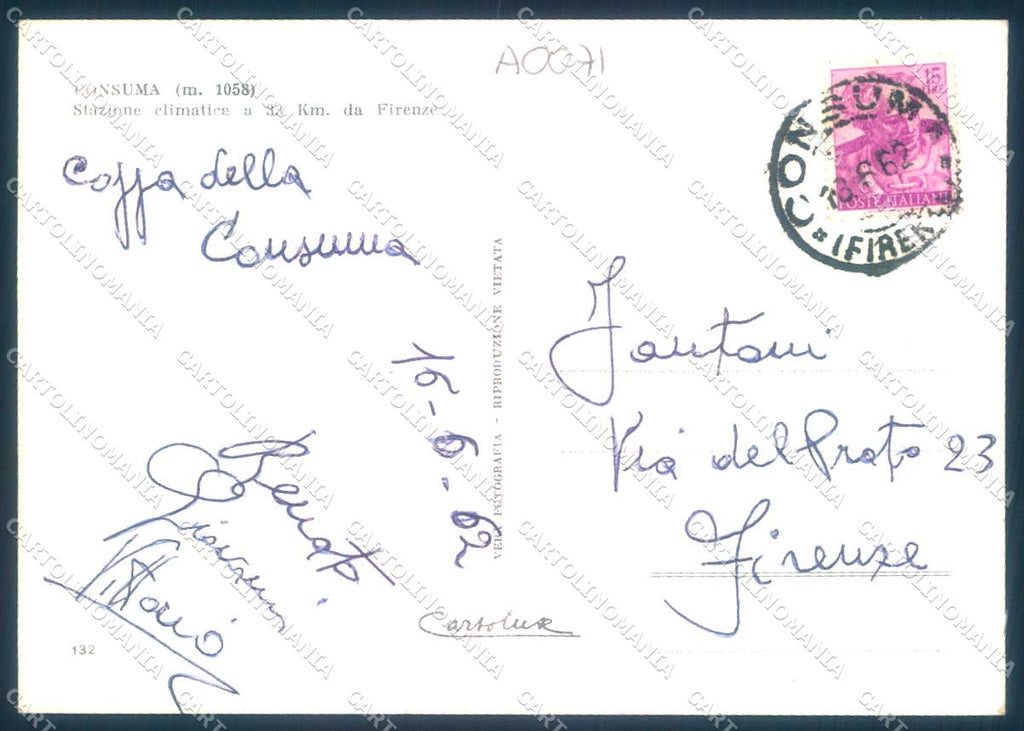 A0071
CONSUMA (m. 1058)
Stazione climatica a 32 Km. da Firenze
15
LIRE
POSTE ITALIANE
CONSUMA
(FIRENZE)
Coppa della
Consuma
16-6-62
Renato
Giovanni
Vittorio
VERA FOTOGRAFIA - RIPRODUZIONE VIETATA
Fantani
Via del Prato 23
Firenze
Cartolux
132
CARTOLINOMANIA